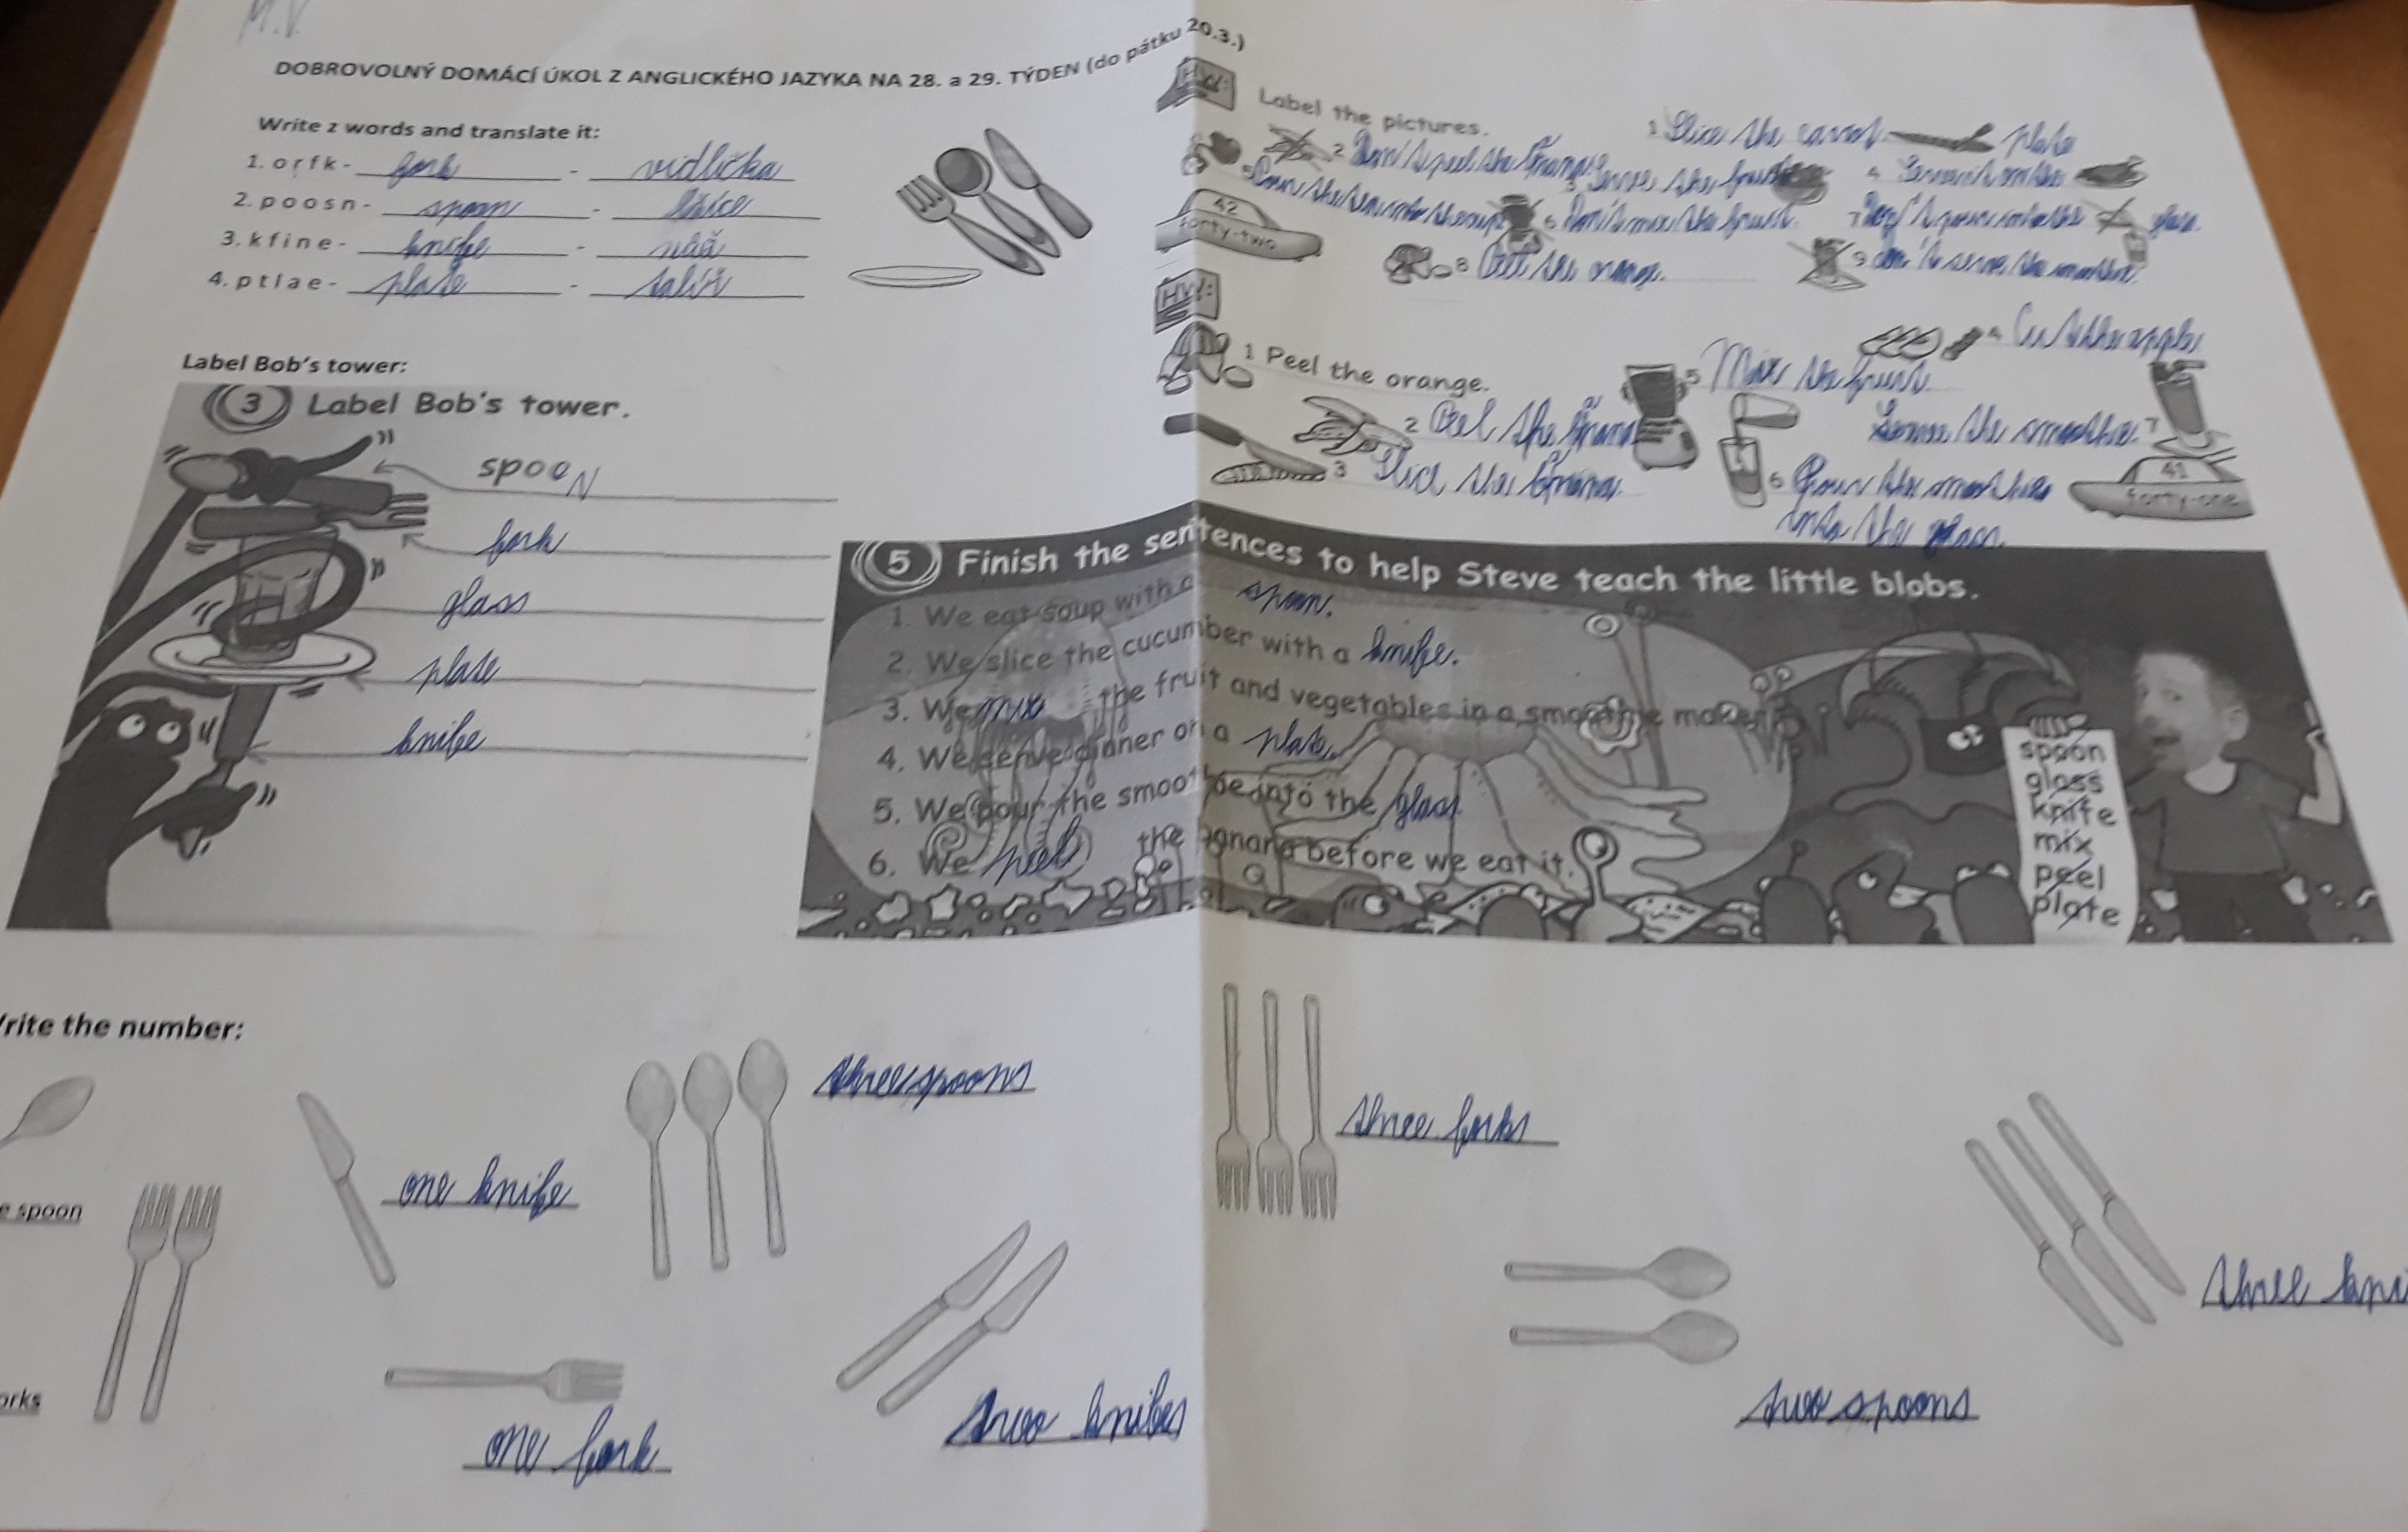 M.V.
DOBROVOLNÝ DOMÁCÍ ÚKOL Z ANGLICKÉHO JAZYKA NA 28. a 29. TÝDEN (do pátku 20.3.)
Write z words and translate it:
1. o r f k - fork - vidlička
2. p o o s n - spoon - lžíce
3. k f i n e - knife - nůž
4. p t l a e - plate - talíř
Label Bob's tower:
3 Label Bob's tower.
spooN
fork
glass
plate
knife
HW:
Label the pictures.
1 Slice the carrot. plate
2 Don't peel the banana.
3 Serve the fruit
4
5 the
42
forty-two
6 Don't mix the fruit.
7 Don't pour glass.
8 Peel the orange.
9 Don't serve the smoothie.
HW:
1 Peel the orange.
2 Peel the banana
3 Slice the banana.
4 Cut the apple
5 Mix the fruit.
6 Pour the smoothie
into the glass.
Serve the smoothie. 7
41
forty-one
5 Finish the sentences to help Steve teach the little blobs.
1. We eat soup with a spoon.
2. We slice the cucumber with a knife.
3. We mix the fruit and vegetables in a smoothie maker.
4. We serve dinner on a plate.
5. We pour the smoothie into the glass.
6. We peel the banana before we eat it.
spoon
glass
knife
mix
peel
plate
Write the number:
e spoon
orks
one knife
three spoons
one fork
two knifes
three forks
two spoons
three kni